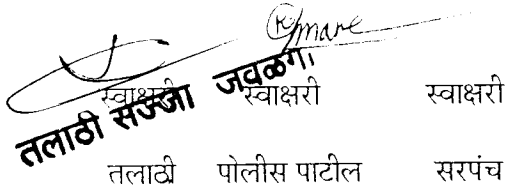 स्वाक्षरी स्वाक्षरी स्वाक्षरी
तलाठी सज्जा जवळगा
तलाठी पोलीस पाटील सरपंच